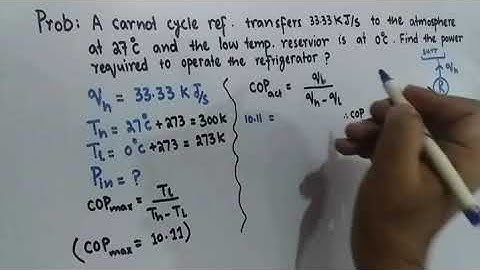 Prob: A carnot cycle ref. transfers 33.33 KJ/s to the atmosphere
at 27°C and the low temp. reservior is at 0°C. Find the power
required to operate the refrigerator ?
qh = 33.33 KJ/s
Th = 27°C + 273 = 300K
TL = 0°C + 273 = 273K
Pin = ?
COPmax = TL / Th - TL
(COPmax = 10.11)
COPact = qL / qh - qL
10.11 =
∴ COP
surr
qh
R